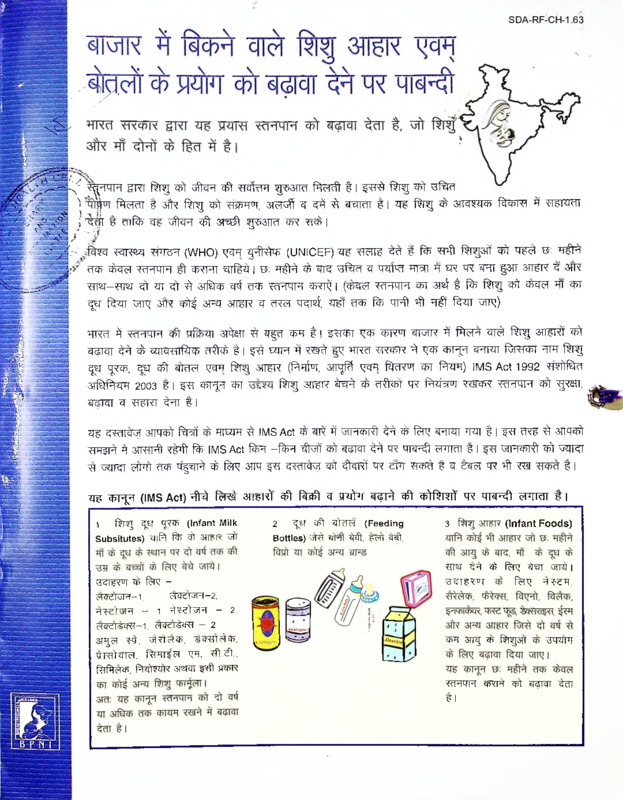 SDA-RF-CH-1.63
बाजार में बिकने वाले शिशु आहार एवम्
बोतलों के प्रयोग को बढ़ावा देने पर पाबन्दी
भारत सरकार द्वारा यह प्रयास स्तनपान को बढ़ावा देता है, जो शिशु
और माँ दोनों के हित में है।
स्तनपान द्वारा शिशु को जीवन की सर्वोत्तम शुरुआत मिलती है। इससे शिशु को उचित
पोषण मिलता है और शिशु को संक्रमण, अलर्जी व दमे से बचाता है। यह शिशु के आवश्यक विकास में सहायता
देता है ताकि वह जीवन की अच्छी शुरुआत कर सके।
विश्व स्वास्थ्य संगठन (WHO) एवम् यूनीसेफ (UNICEF) यह सलाह देते हैं कि सभी शिशुओं को पहले छः महीने
तक केवल स्तनपान ही कराना चाहिये। छः महीने के बाद उचित व पर्याप्त मात्रा में घर पर बना हुआ आहार दें और
साथ–साथ दो या दो से अधिक वर्ष तक स्तनपान कराऐं। (केवल स्तनपान का अर्थ है कि शिशु को केवल माँ का
दूध दिया जाए और कोई अन्य आहार व तरल पदार्थ, यहाँ तक कि पानी भी नहीं दिया जाए)
भारत में स्तनपान की प्रक्रिया अपेक्षा से बहुत कम है। इसका एक कारण बाजार में मिलने वाले शिशु आहारों को
बढ़ावा देने के व्यावसायिक तरीके है। इसे ध्यान में रखते हुए भारत सरकार ने एक कानून बनाया जिसका नाम शिशु
दूध पूरक, दूध की बोतल एवम् शिशु आहार (निर्माण, आपूर्ति एवम् वितरण का नियम) IMS Act 1992 संशोधित
अधिनियम 2003 है। इस कानून का उद्देश्य शिशु आहार बेचने के तरीकों पर नियंत्रण रखकर स्तनपान को सुरक्षा,
बढ़ावा व सहारा देना है।
यह दस्तावेज आपको चित्रों के माध्यम से IMS Act के बारे में जानकारी देने के लिए बनाया गया है। इस तरह से आपको
समझने मे आसानी रहेगी कि IMS Act किन –किन चीजों को बढ़ावा देने पर पाबन्दी लगाता है। इस जानकारी को ज्यादा
से ज्यादा लोगो तक पंहुचाने के लिए आप इस दस्तावेज़ को दीवारों पर टाँग सकते है व टैबल पर भी रख सकते है।
यह कानून (IMS Act) नीचे लिखे आहारों की बिक्री व प्रयोग बढ़ाने की कोशिशों पर पाबन्दी लगाता है।
1 शिशु दूध पूरक (Infant Milk
Subsitutes) यानि कि वो आहार जो
माँ के दूध के स्थान पर दो वर्ष तक की
उम्र के बच्चों के लिए बेचे जायें।
उदाहरण के लिए –
लैक्टोजन–1, लैक्टोजन–2,
नेस्टोजन – 1 नेस्टोजन – 2,
लैक्टोडेक्स–1, लैक्टोडेक्स – 2
अमूल स्प्रे, जेरोलेक, डेक्सोलेक,
प्रेसोवाल, सिमाईल एम. सी.टी.,
सिमिलेक, नियोश्योर अथवा इसी प्रकार
का कोई अन्य शिशु फार्मूला।
अतः यह कानून स्तनपान को दो वर्ष
या अधिक तक कायम रखने में बढावा
देता है।
2 दूध की बोतलें (Feeding
Bottles) जैसे थोनी बेबी, हैलो बेबी,
विप्रो या कोई अन्य ब्रान्ड
3 शिशु आहार (Infant Foods)
यानि कोई भी आहार जो छः महीने
की आयु के बाद, माँ के दूध के
साथ देने के लिए बेचा जाये।
उदाहरण के लिए नेस्टम,
सैरेलेक, फैरेक्स, विएनो, विलैक,
इनफाकेयर, फस्ट फूड, डेक्सराइस, ईस्म
और अन्य आहार जिसे दो वर्ष से
कम आयु के शिशुओं के उपयोग
के लिए बढ़ावा दिया जाए।
यह कानून छः महीने तक केवल
स्तनपान कराने को बढ़ावा देता
है।
BPNI